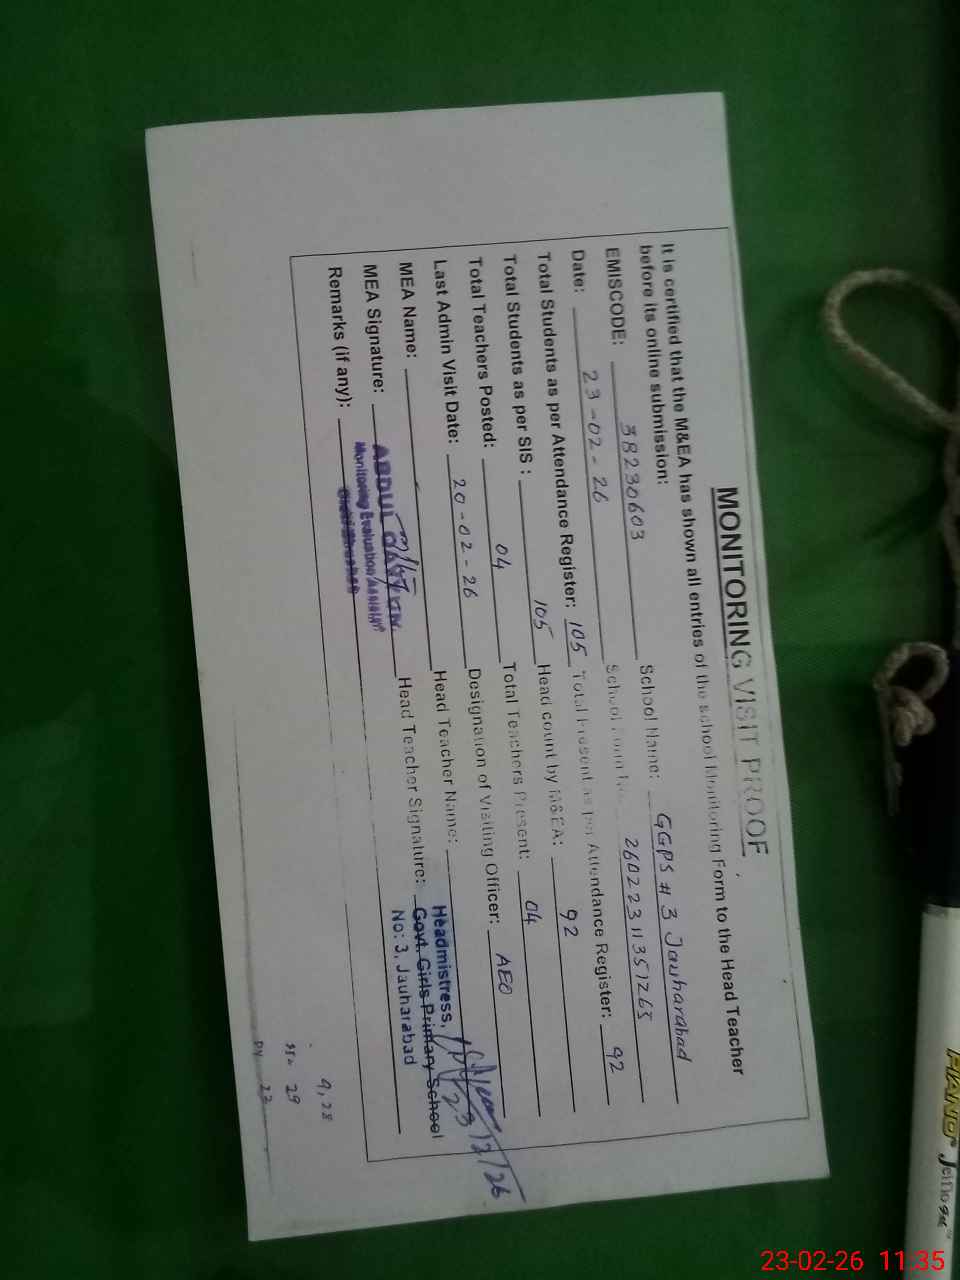 MONITORING VISIT PROOF
It is certified that the M&EA has shown all entries of the school Monitoring Form to the Head Teacher
before its online submission:
EMISCODE: 38230603 School Name: GGPS # 3 Jauharabad
Date: 23-02-26 School 26022311351265
Total Students as per Attendance Register: 105 Total Present as per Attendance Register: 92
Total Students as per SIS : 105 Head count by M&EA: 92
Total Teachers Posted: 04 Total Teachers Present: 04
Last Admin Visit Date: 20-02-26 Designation of Visiting Officer: AEO
MEA Name: Head Teacher Name:
MEA Signature: ABDUL Head Teacher Signature:
Monitoring Evaluation Assistant
Headmistress,
Govt. Girls Primary School
No: 3, Jauharabad
23/2/26
Remarks (if any):
29
22
PIANO
23-02-26 11:35